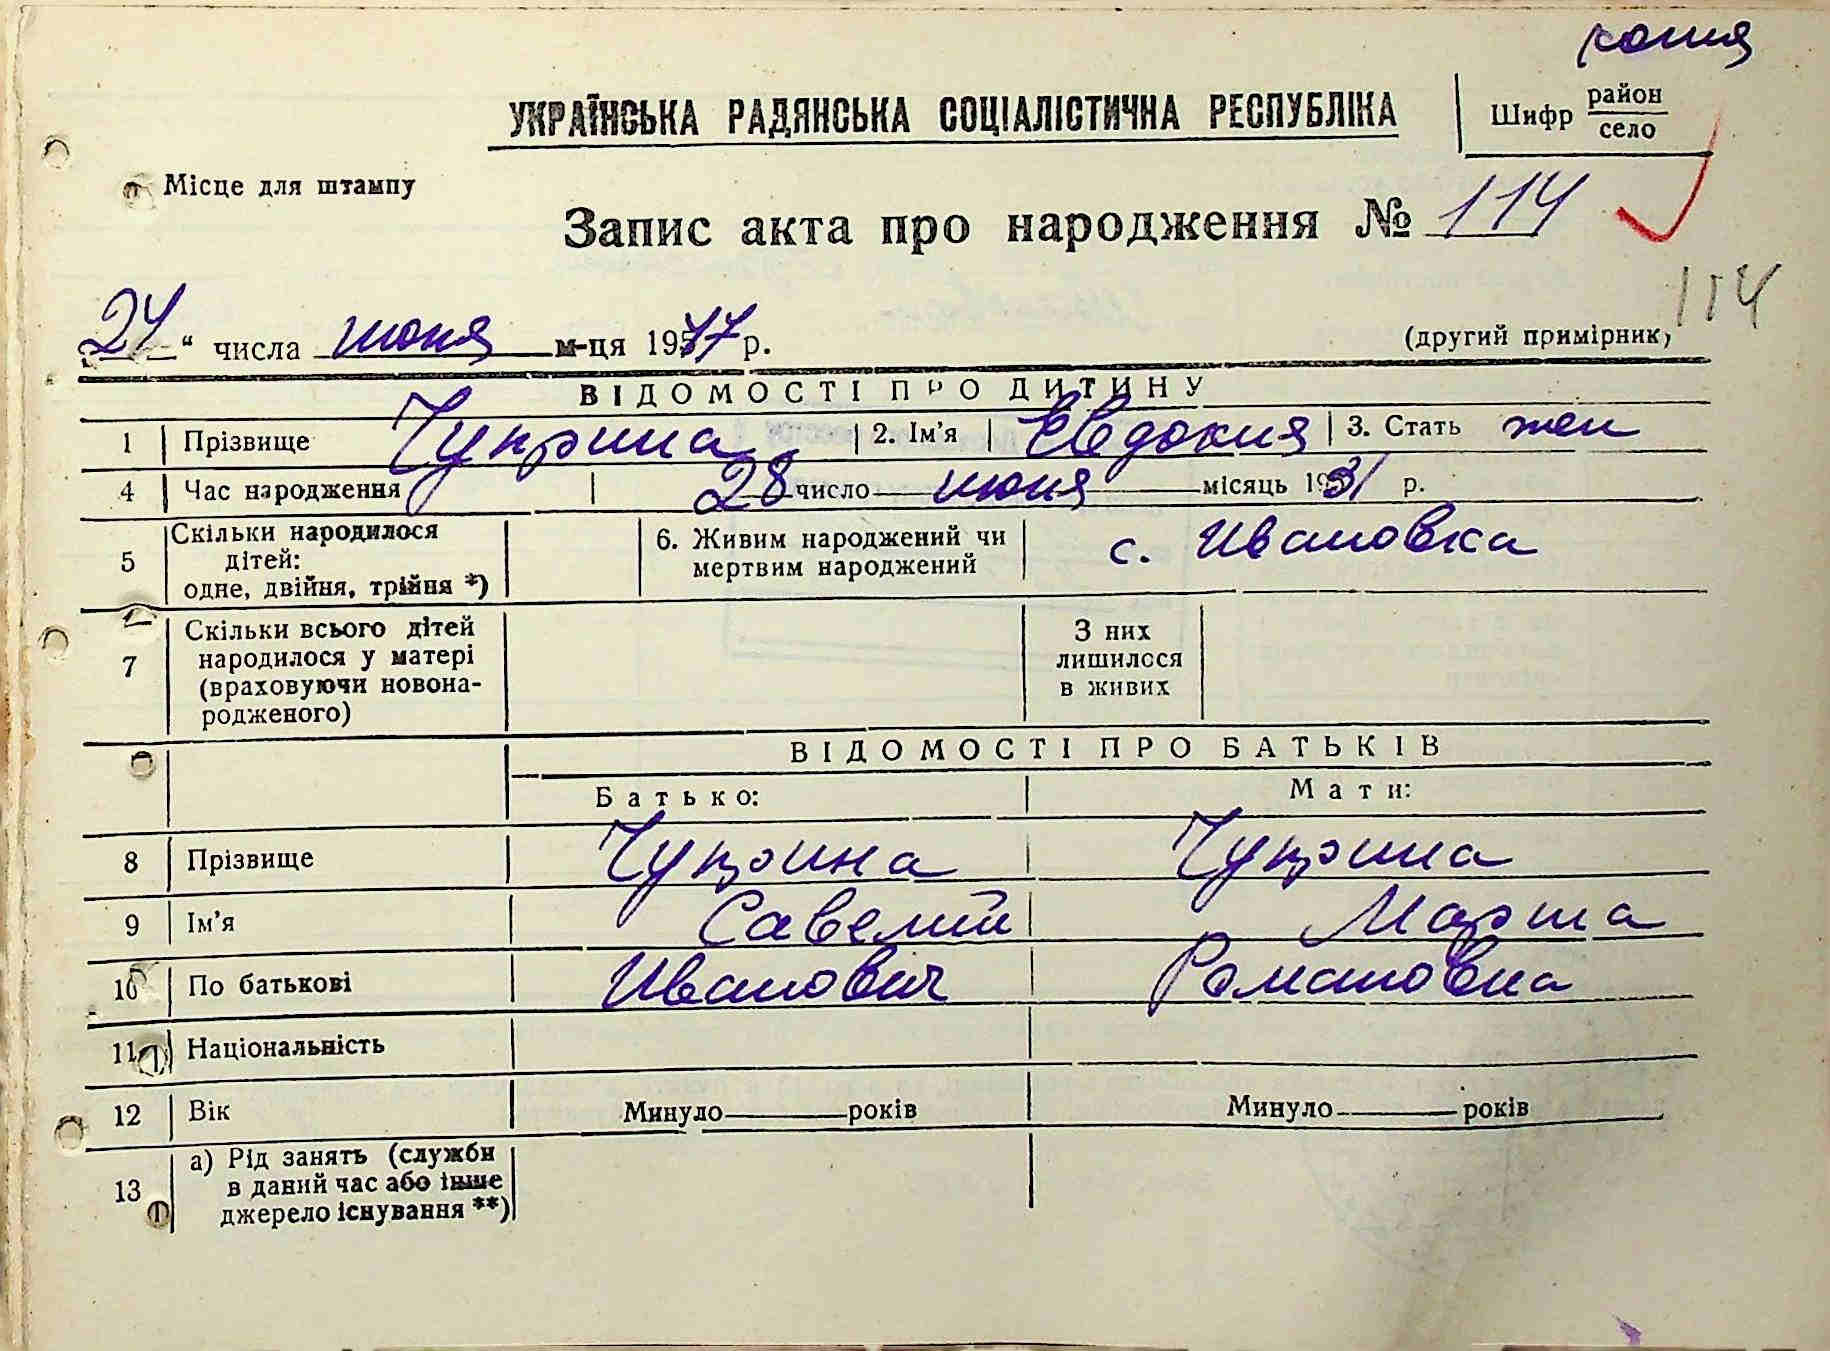 копия
УКРАЇНСЬКА РАДЯНСЬКА СОЦІАЛІСТИЧНА РЕСПУБЛІКА
Шифр район
село
Місце для штампу
Запис акта про народження № 114
114
24 " числа июня м-ця 1977 р. (другий примірник)
ВІДОМОСТІ ПРО ДИТИНУ
1 Прізвище Чуприна 2. Ім'я Евдокия 3. Стать жен
4 Час народження 28 число июня місяць 1931 р.
5 Скільки народилося дітей: одне, двійня, трійня *) 6. Живим народжений чи мертвим народжений с. Ивановка
7 Скільки всього дітей народилося у матері (враховуючи новона-родженого) З них лишилося в живих
ВІДОМОСТІ ПРО БАТЬКІВ
Батько: Мати:
8 Прізвище Чуприна Чуприна
9 Ім'я Савелий Мария
10 По батькові Иванович Романовна
11 Національність
12 Вік Минуло років Минуло років
13 а) Рід занять (служби в даний час або інше джерело існування **)